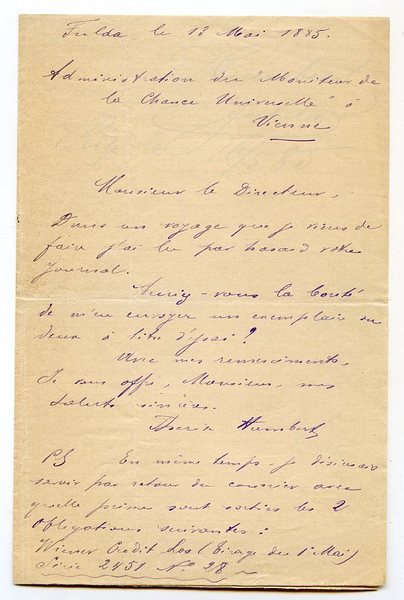 Fulda, le 13 Mai 1885.
Administration du "Moniteur de
la Chance Universelle" à
Vienne
Monsieur le Directeur,
Dans un voyage que je viens de
faire j'ai lu par hasard votre
journal.
Auriez-vous la bonté
de m'en envoyer un exemplaire ou
deux à titre d'essai?
Avec mes remerciments,
Je vous offre, Monsieur, mes
saluts sincères.
Humbert
PS En même temps je désirerais
savoir par retour du courrier avec
quelle prime sont sorties les 2
Obligations suivantes:
Wiener Credit Los (Tirage du 1 Mai)
Série 2451 No 28